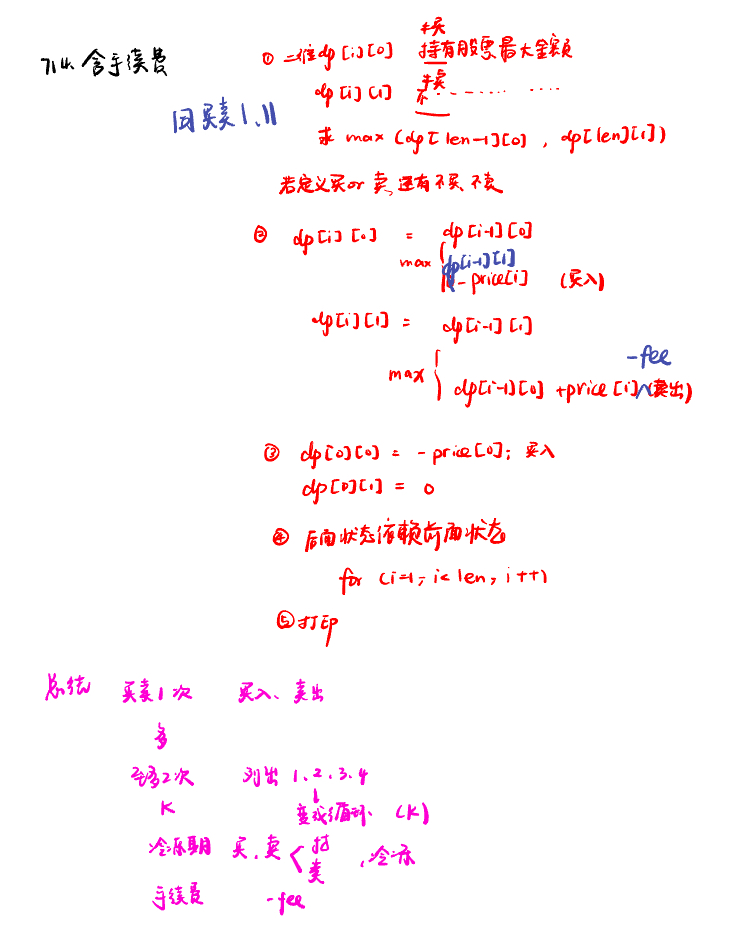 714 含手续费
同买卖 I、II
① 二维dp[i][0] 持有股票最大金额
dp[i][1] 不 ...... ......
求 max (dp[len-1][0], dp[len][1])
若定义买or卖,还有不买、不卖
② dp[i][0] = dp[i-1][0]
max { dp[i-1][1]
- price[i] (买入)
dp[i][1] = dp[i-1][1]
-fee
max { dp[i-1][0] +price[i] (卖出)
③ dp[0][0] = - price[0]; 买入
dp[0][1] = 0
④ 后面状态依赖前面状态
for (i=1; i<len; i++)
⑤打印
总结 买卖1次 买入、卖出
多
至多2次 列出 1、2、3、4
↓
K 变成循环 (K)
冷冻期 买、卖 < 持 , 冷冻
卖
手续费 -fee